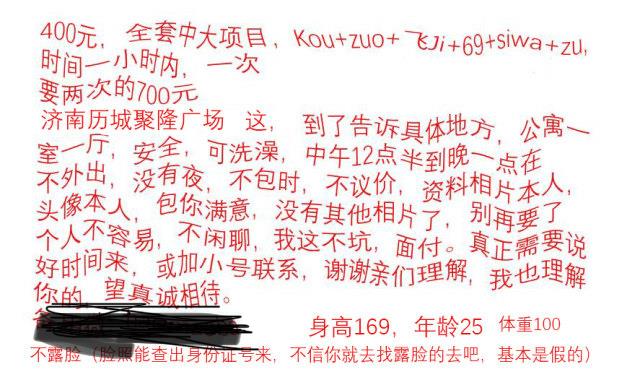 400元，全套中大项目，Kou+zuo+飞Ji+69+siwa+zu,
时间一小时内，一次
要两次的700元
济南历城聚隆广场 这，到了告诉具体地方，公寓一
室一厅，安全，可洗澡，中午12点半到晚一点在
不外出，没有夜，不包时，不议价，资料相片本人，
头像本人，包你满意，没有其他相片了，别再要了
个人不容易，不闲聊，我这不坑，面付。真正需要说
好时间来，或加小号联系，谢谢亲们理解，我也理解
你的 望真诚相待。
身高169，年龄25 体重100
不露脸（脸照能查出身份证号来，不信你就去找露脸的去吧，基本是假的）